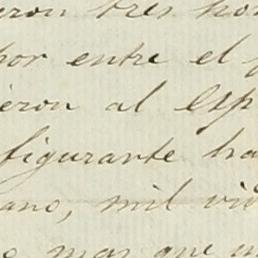 eron tres ho
por entre el
ieron al Esp
figurante ha
ano, mil vi
mas que